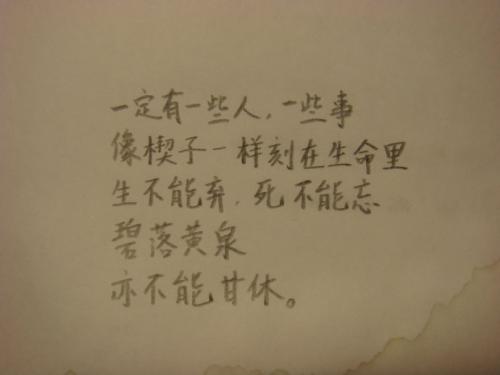 一定有一些人，一些事
像楔子一样刻在生命里
生不能弃，死不能忘
碧落黄泉
亦不能甘休。